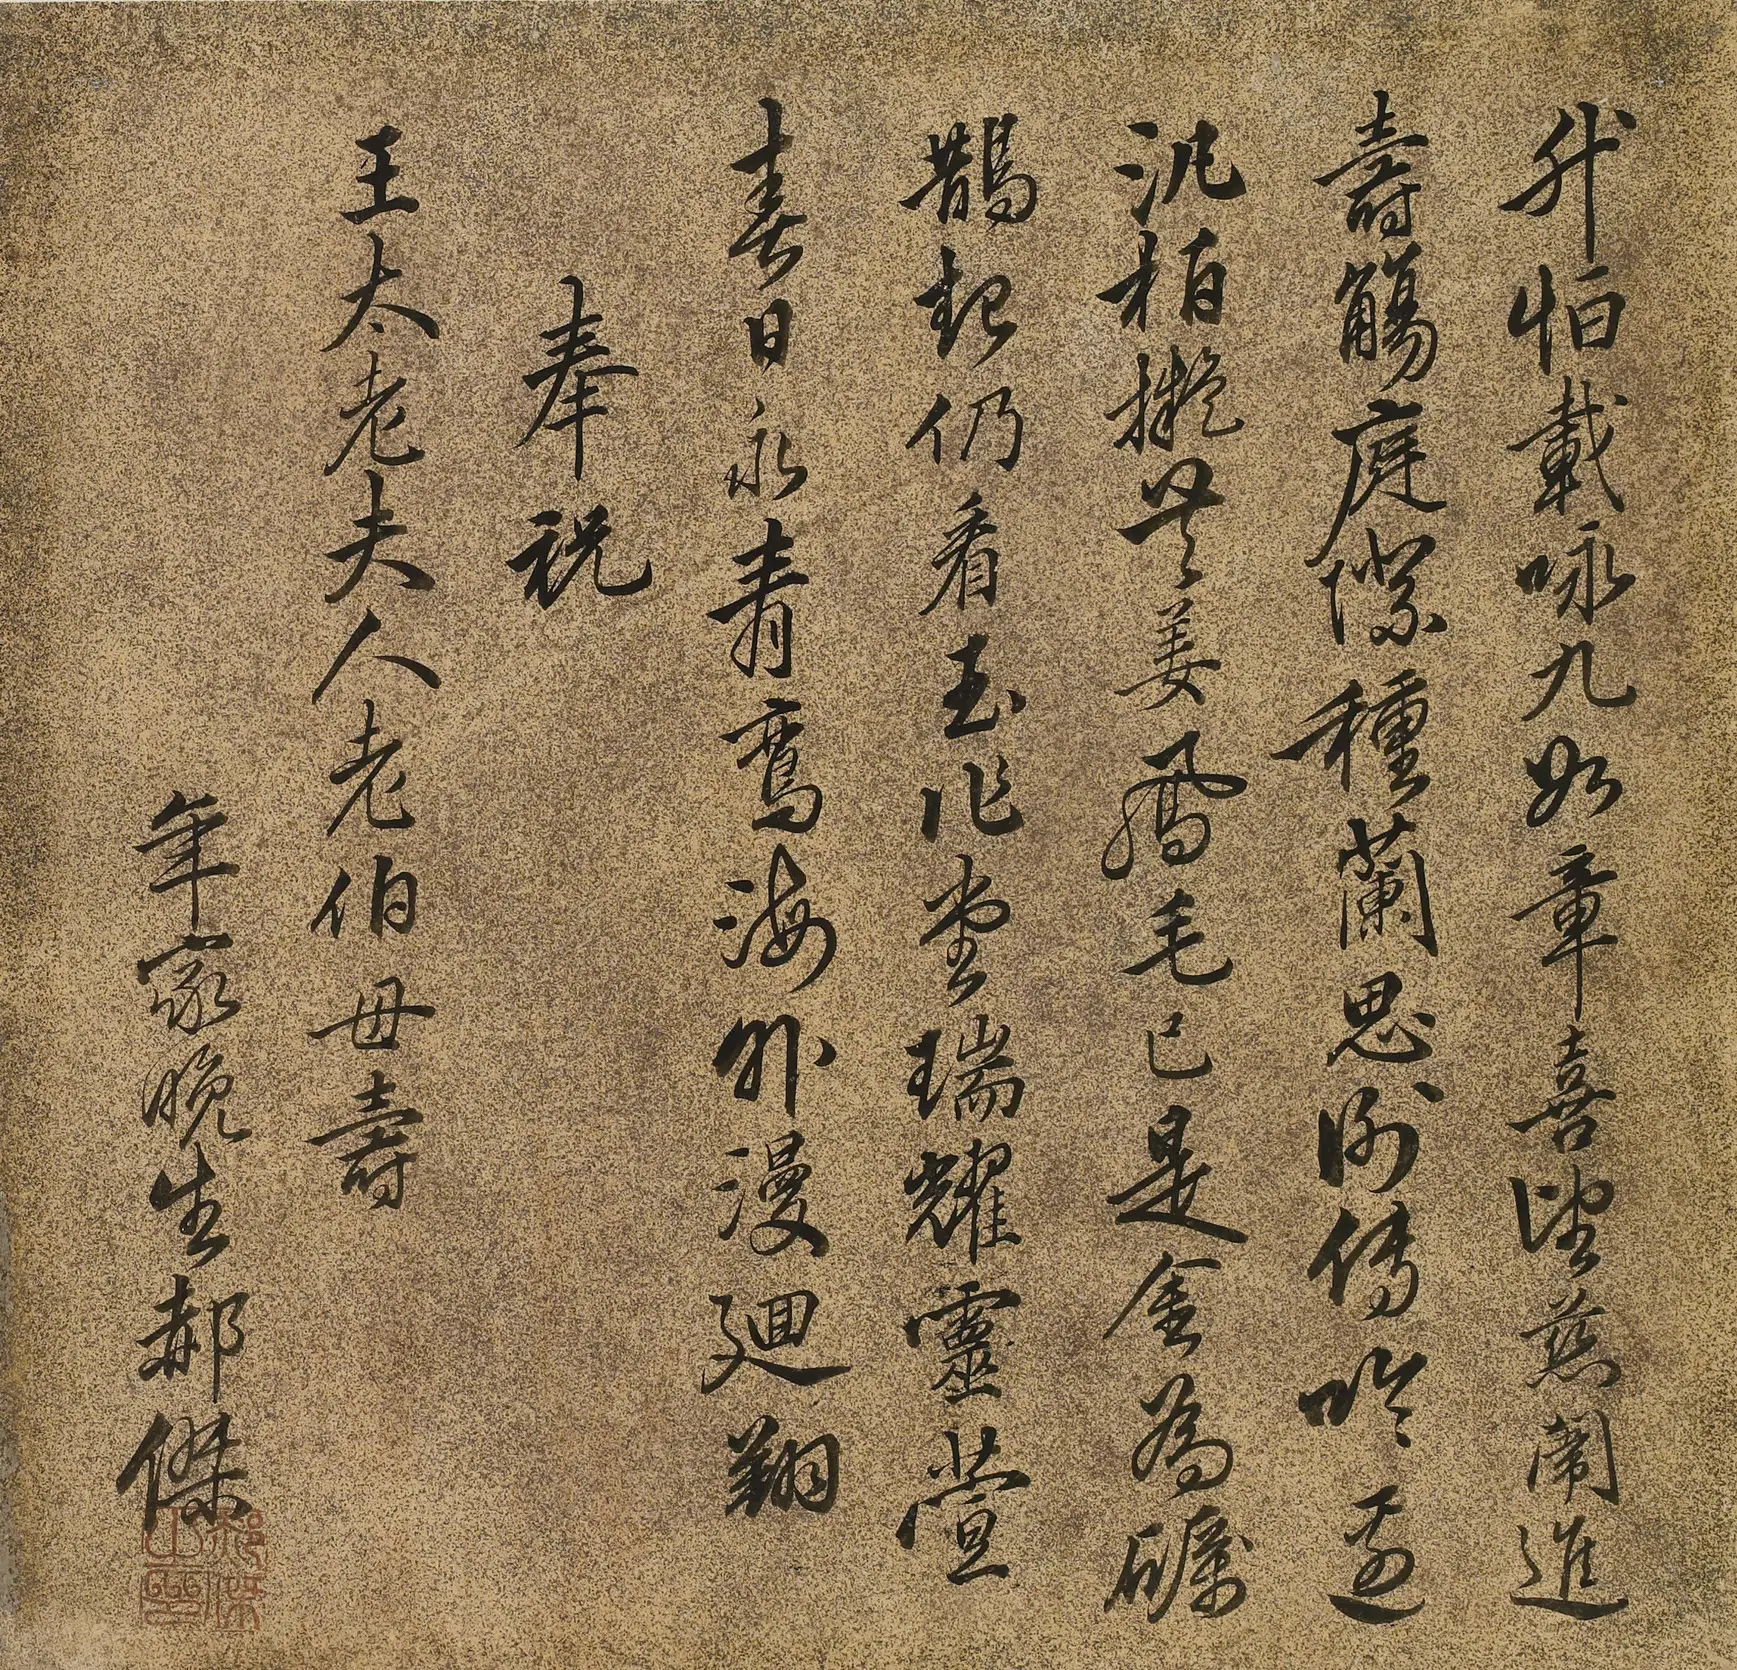 升恒載咏九如章喜望慈闈進
壽觴庭際種蘭思例傳吟邊
泛柏擬共姜鳳毛已是金為礪
鵲起仍看玉作堂瑞耀靈萱
春日永青鸞海外漫廻翔
奉祝
王太老夫人老伯母壽
年家晚生郝傑